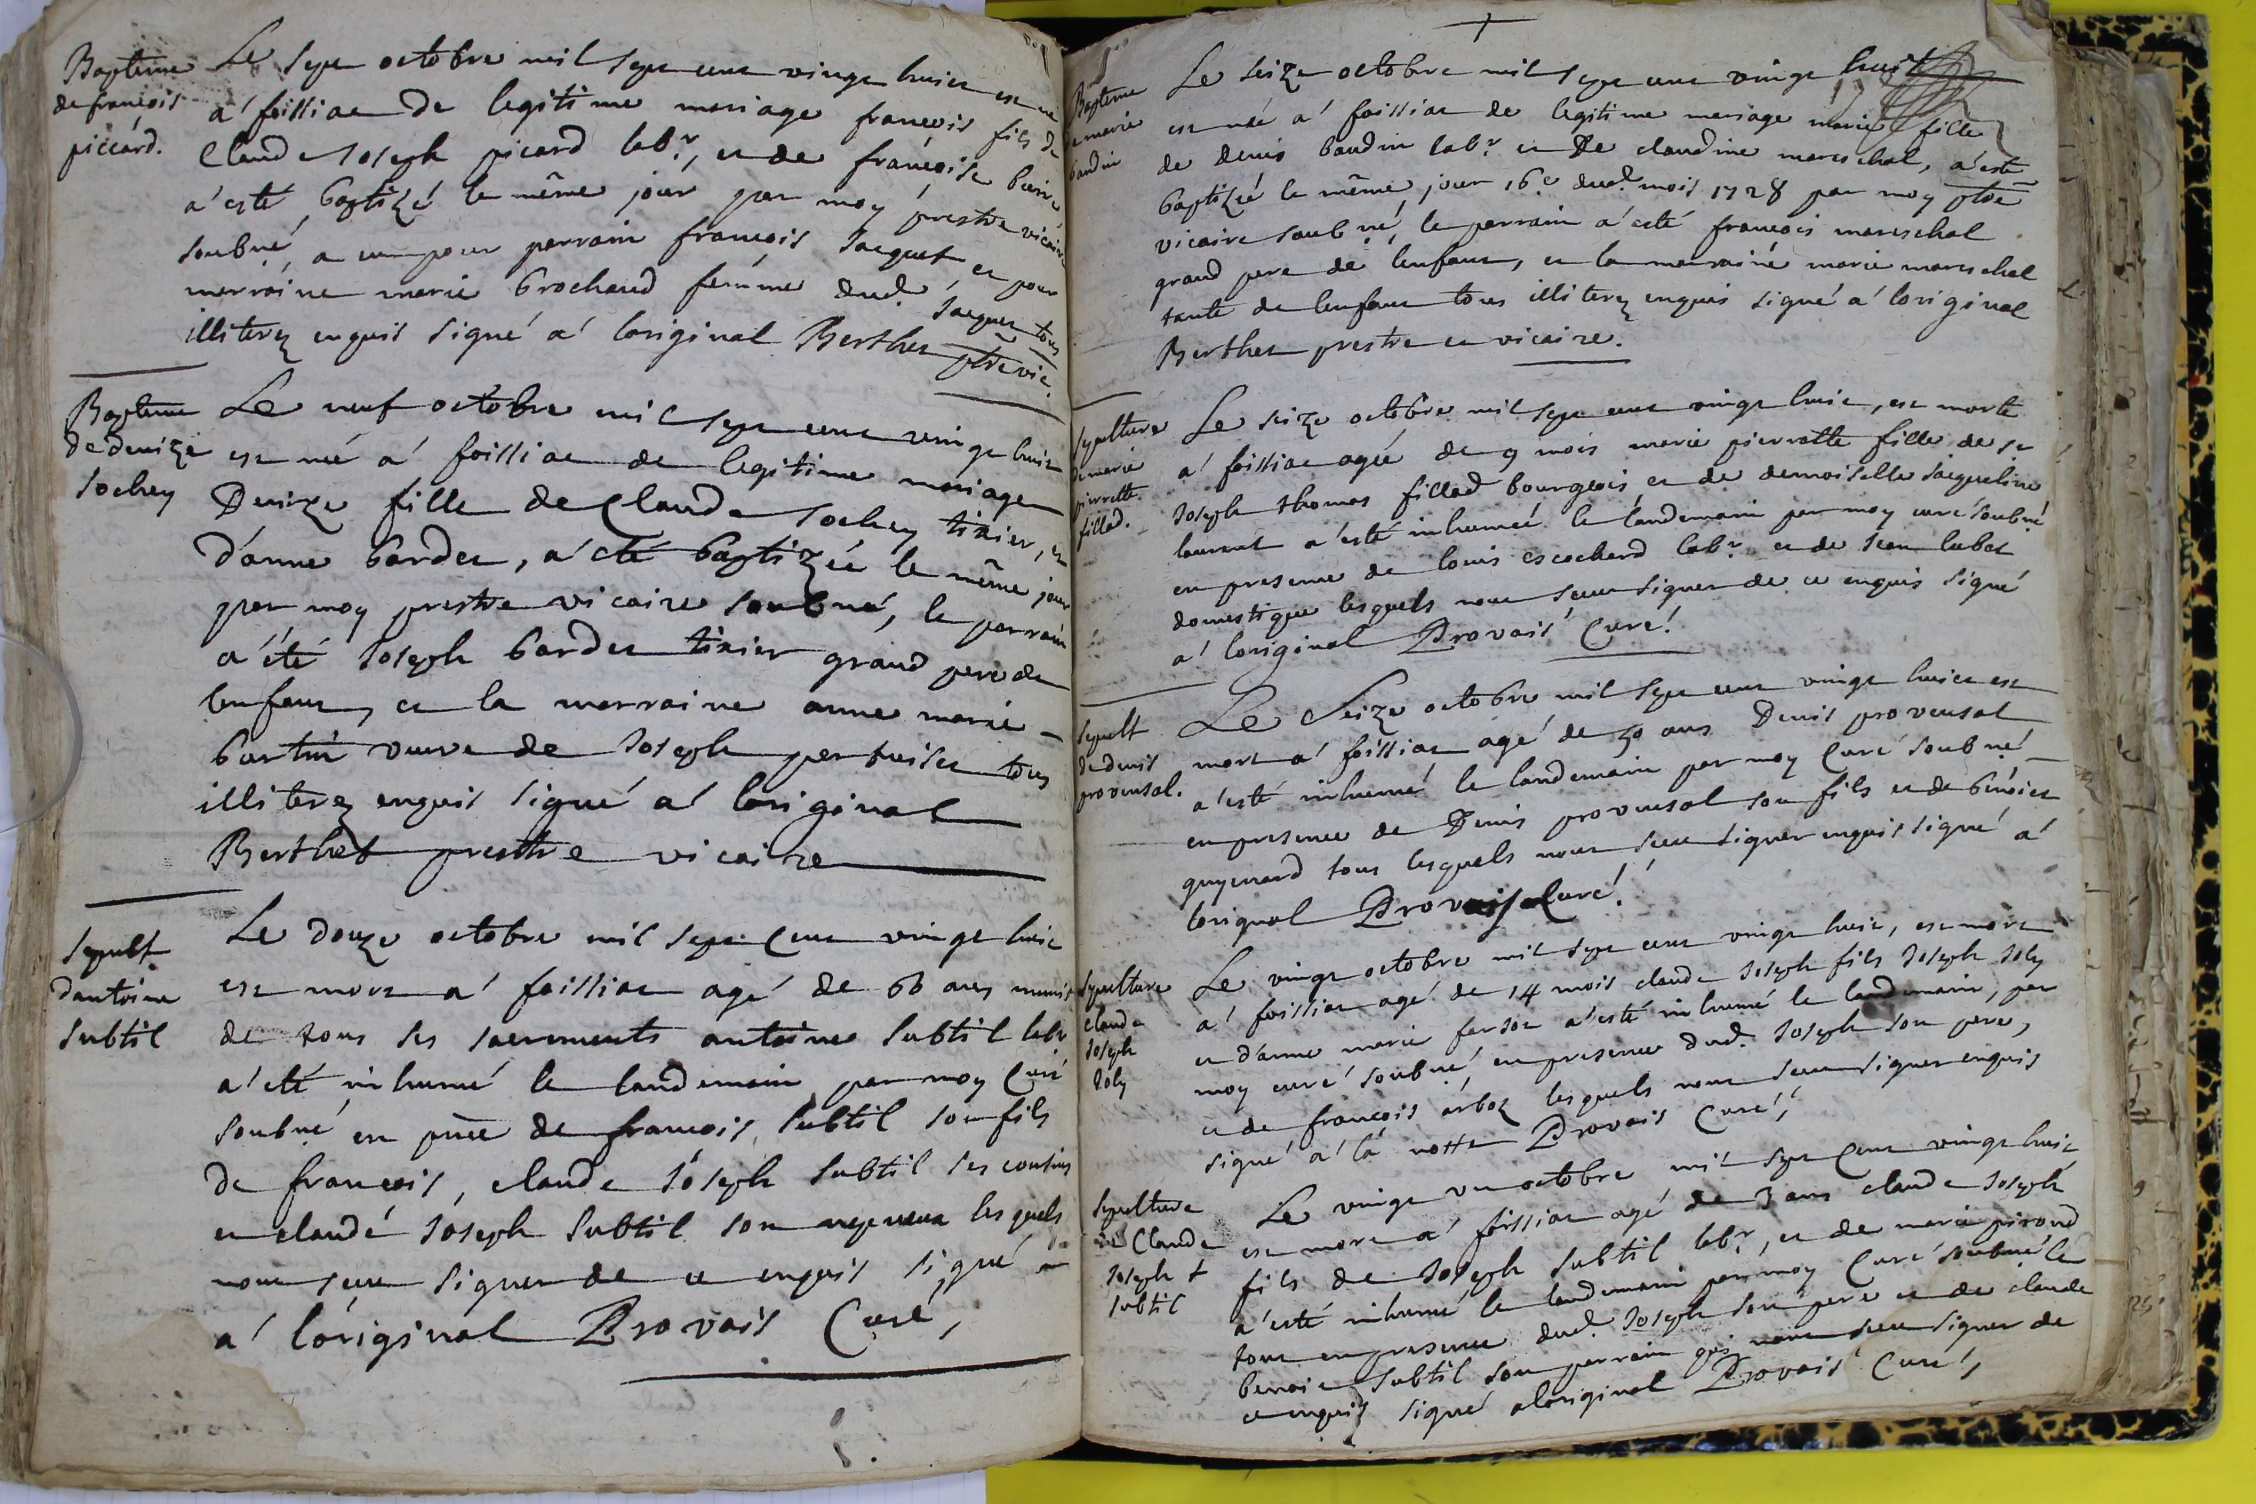 Bapteme
de françois
piccard.
Le sept octobre mil sept cent vingt huict est né
a' foissiac de legitime mariage françois fils de
Claude Joseph picard labr, et de françoise
a' esté baptizé le même jour par moy prestre vicaire
soubné, a eu pour parrain françois Jacquet et pour
marraine marie brochand femme dud. Jacquet tous
illiterez enquis signé a' loriginal Berthet ptre vic.
Bapteme
de denize
sochey
Le neuf octobre mil sept cent vingt huict
est né a' foissiac de legitime mariage
Denize fille de Claude sochey tixier, et
d'anne bardet, a' eté baptizée le même jour
par moy prestre vicaire soubné, le parrain
a' été Joseph bardet tixier grand pere de
lenfant, et la marraine anne marie
veuve de Joseph pertuiset tous
illiterez enquis signé a' loriginal
Berthet prestre vicaire
sepult
dantoine
subtil
Le douze octobre mil sept Cent vingt huict
est mort a' foissiac agé de 66 ans munit
de tous ses sacrements antoine subtil labr
a' eté inhumé le landemain par moy Curé
soubné en pnce de françois subtil son fils
de françois, claude Joseph subtil ses cousins
et claude Joseph subtil son nepveux lesquels
nont sceu signer de ce enquis signé
a' loriginal Provais Curé,
Bapteme
de marie
baudin
Le seize octobre mil sept cent vingt huit
est née a' foissiac de legitime mariage marie fille
de denis baudin labr et De claudine mareschal, a' esté
baptizée le même jour 16e dud. mois 1728 par moy ptre
vicaire soubné, le parrain a' esté françois mareschal
grand pere de lenfant, et la marraine marie mareschal
tante de lenfant tous illiterez enquis signé a' loriginal
Berthet prestre et vicaire.
sepulture
de marie
pierrette
fillod.
Le seize octobre mil sept cent vingt huict, est morte
a' foissiac agée de 9 mois marie pierrette fille de sr
Joseph thomas fillod bourgeois et de demoiselle Jacqueline
laurent a' esté inhumée le landemain par moy curé soubné
en presence de louis escochard labr et de Jean lubet
domestique lesquels nont sceu signer de ce enquis signé
a' loriginal Provais Curé!
sepult
de denis
provensal.
Le Seize octobre mil sept cent vingt huict est
mort a' foissiac agé de 50 ans Denis provensal
a' esté inhumé le landemain par moy Curé soubné
en presence de Denis provensal son fils et de benoict
guyenard tous lesquels nont sceu signer enquis signé a'
lorignal Provais Curé!
Sepulture
claude
Joseph
Joly
Le vingt octobre mil sept cent vingt huict, est mort
a' foissiac agé de 14 mois claude Joseph fils Joseph Joly
et d'anne marie a' esté inhumé le landemain, par
moy curé soubné en presence dud. Joseph son pere,
et de françois arboz lesquels nont sceu signer enquis
signé a' la notte Provais Curé,
sepulture
de Claude
Joseph
subtil
Le vingt un octobre mil sept Cent vingt huict
est mort a' foissiac agé de 3 ans claude Joseph
fils de Joseph subtil labr, et de marie piroud
a' esté inhumé le landemain par moy Curé soubné le
tout en presence dud. Joseph son pere et de claude
benoit subtil son parrain qui nont sceu signer de
ce enquis signé aloriginal Provais Curé,